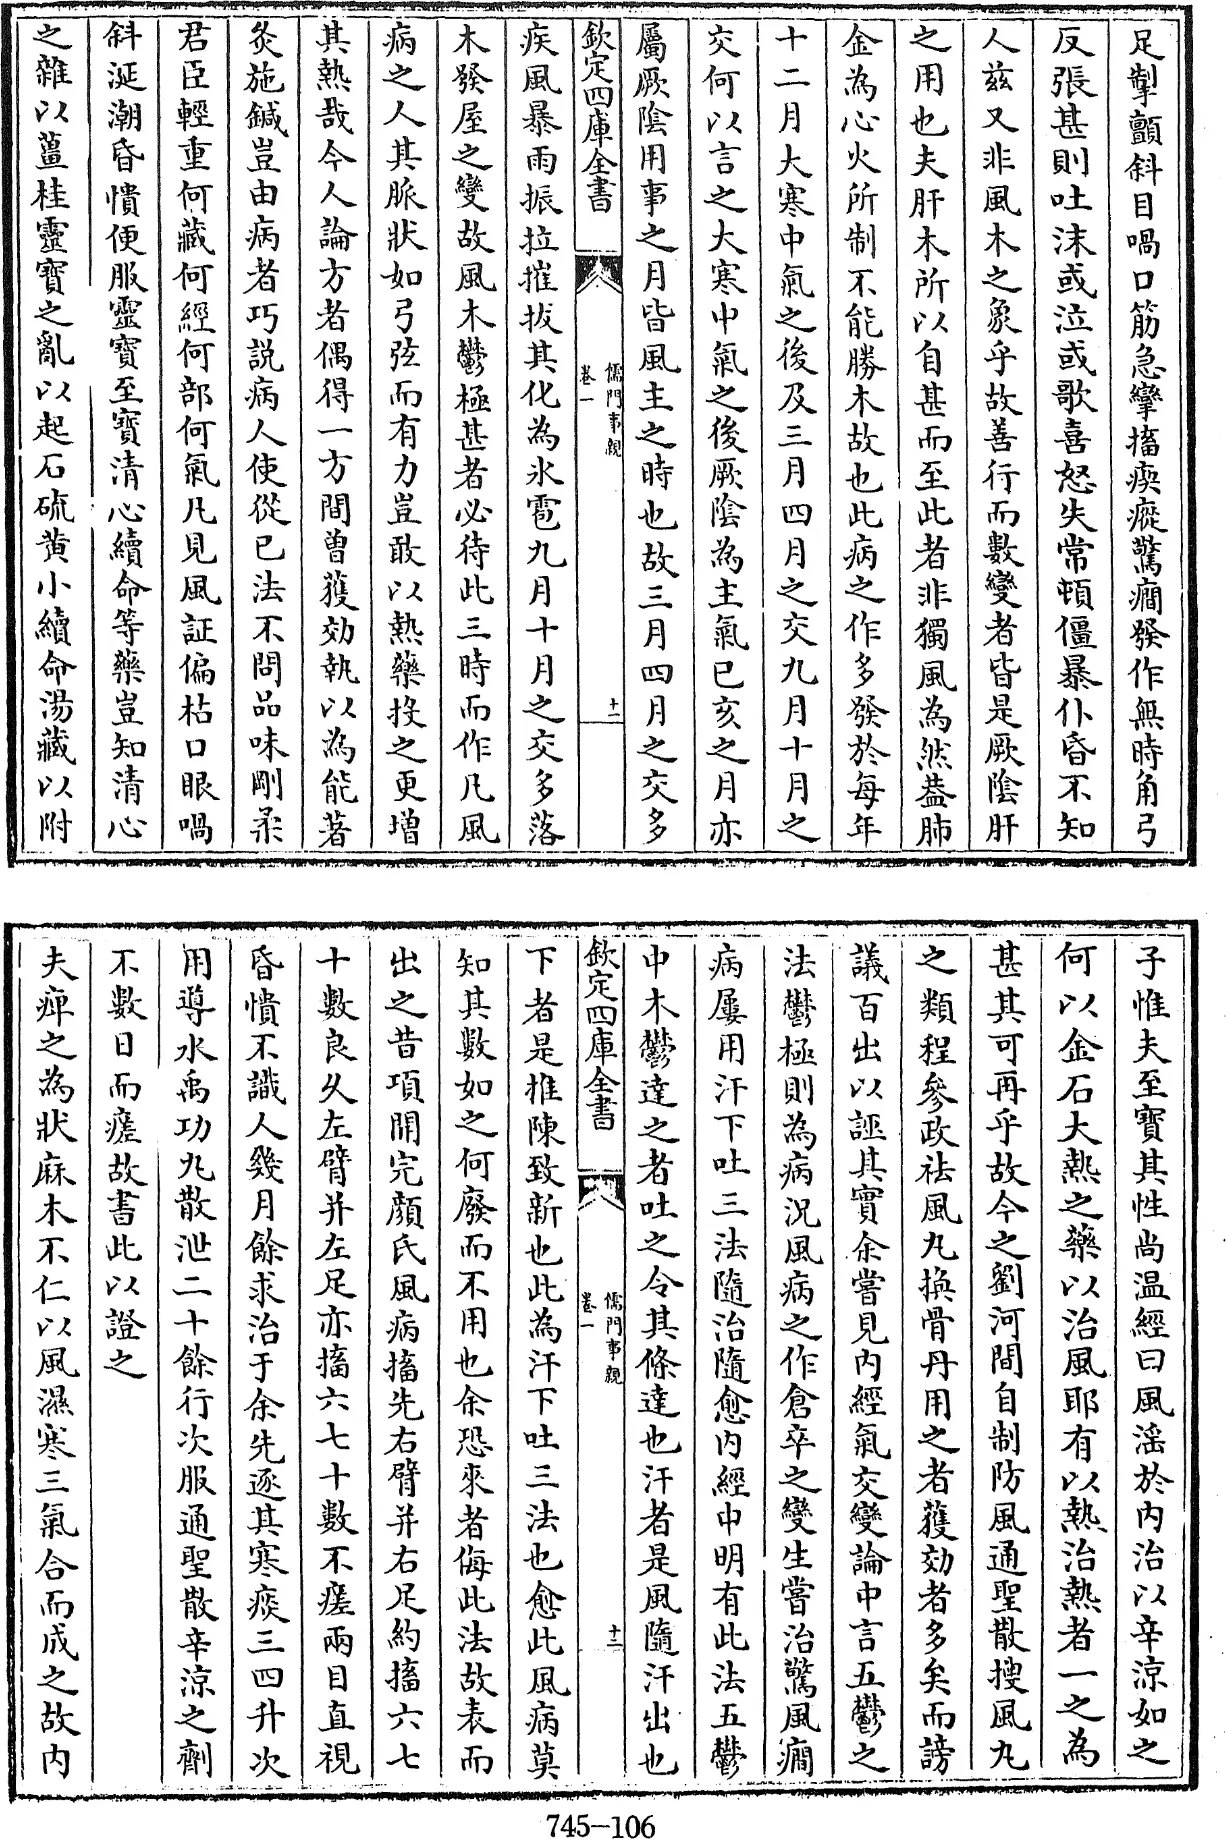 足掣顫斜目喎口筋急攣搐瘈瘲驚癇發作無時角弓
反張甚則吐沫或泣或歌喜怒失常頓僵暴仆昏不知
人兹又非風木之象乎故善行而數變者皆是厥陰肝
之用也夫肝木所以自甚而至此者非獨風為然葢肺
金為心火所制不能勝木故也此病之作多發於每年
十二月大寒中氣之後及三月四月之交九月十月之
交何以言之大寒中氣之後厥陰為主氣巳亥之月亦
屬厥陰用事之月皆風主之時也故三月四月之交多
欽定四庫全書
儒門事親
卷一
十一
疾風暴雨振拉摧拔其化為氷雹九月十月之交多落
木發屋之變故風木鬱極甚者必待此三時而作凡風
病之人其脈狀如弓弦而有力豈敢以熱藥投之更增
其熱哉今人論方者偶得一方間曽獲効執以為能著
灸施鍼豈由病者巧説病人使從已法不問品味剛柔
君臣輕重何藏何經何部何氣凡見風証偏枯口眼喎
斜涎潮昏憒便服靈寶至寶清心續命等藥豈知清心
之雜以薑桂靈寶之亂以起石硫黄小續命湯藏以附
子惟夫至寶其性尚温經曰風滛於内治以辛涼如之
何以金石大熱之藥以治風耶有以熱治熱者一之為
甚其可再乎故今之劉河間自制防風通聖散搜風丸
之類程參政祛風丸換骨丹用之者獲効者多矣而謗
議百出以誣其實余嘗見内經氣交變論中言五鬱之
法鬱極則為病況風病之作倉卒之變生嘗治驚風癇
病屢用汗下吐三法隨治隨愈内經中明有此法五鬱
中木鬱達之者吐之令其條達也汗者是風隨汗出也
欽定四庫全書
儒門事親
卷一
十二
下者是推陳致新也此為汗下吐三法也愈此風病莫
知其數如之何廢而不用也余恐來者侮此法故表而
出之昔項開完顔氏風病搐先右臂并右足約搐六七
十數良久左臂并左足亦搐六七十數不瘥兩目直視
昏憒不識人幾月餘求治于余先逐其寒痰三四升次
用導水禹功丸散泄二十餘行次服通聖散辛涼之劑
不數日而瘥故書此以證之
夫痺之為狀麻木不仁以風濕寒三氣合而成之故内
745-106